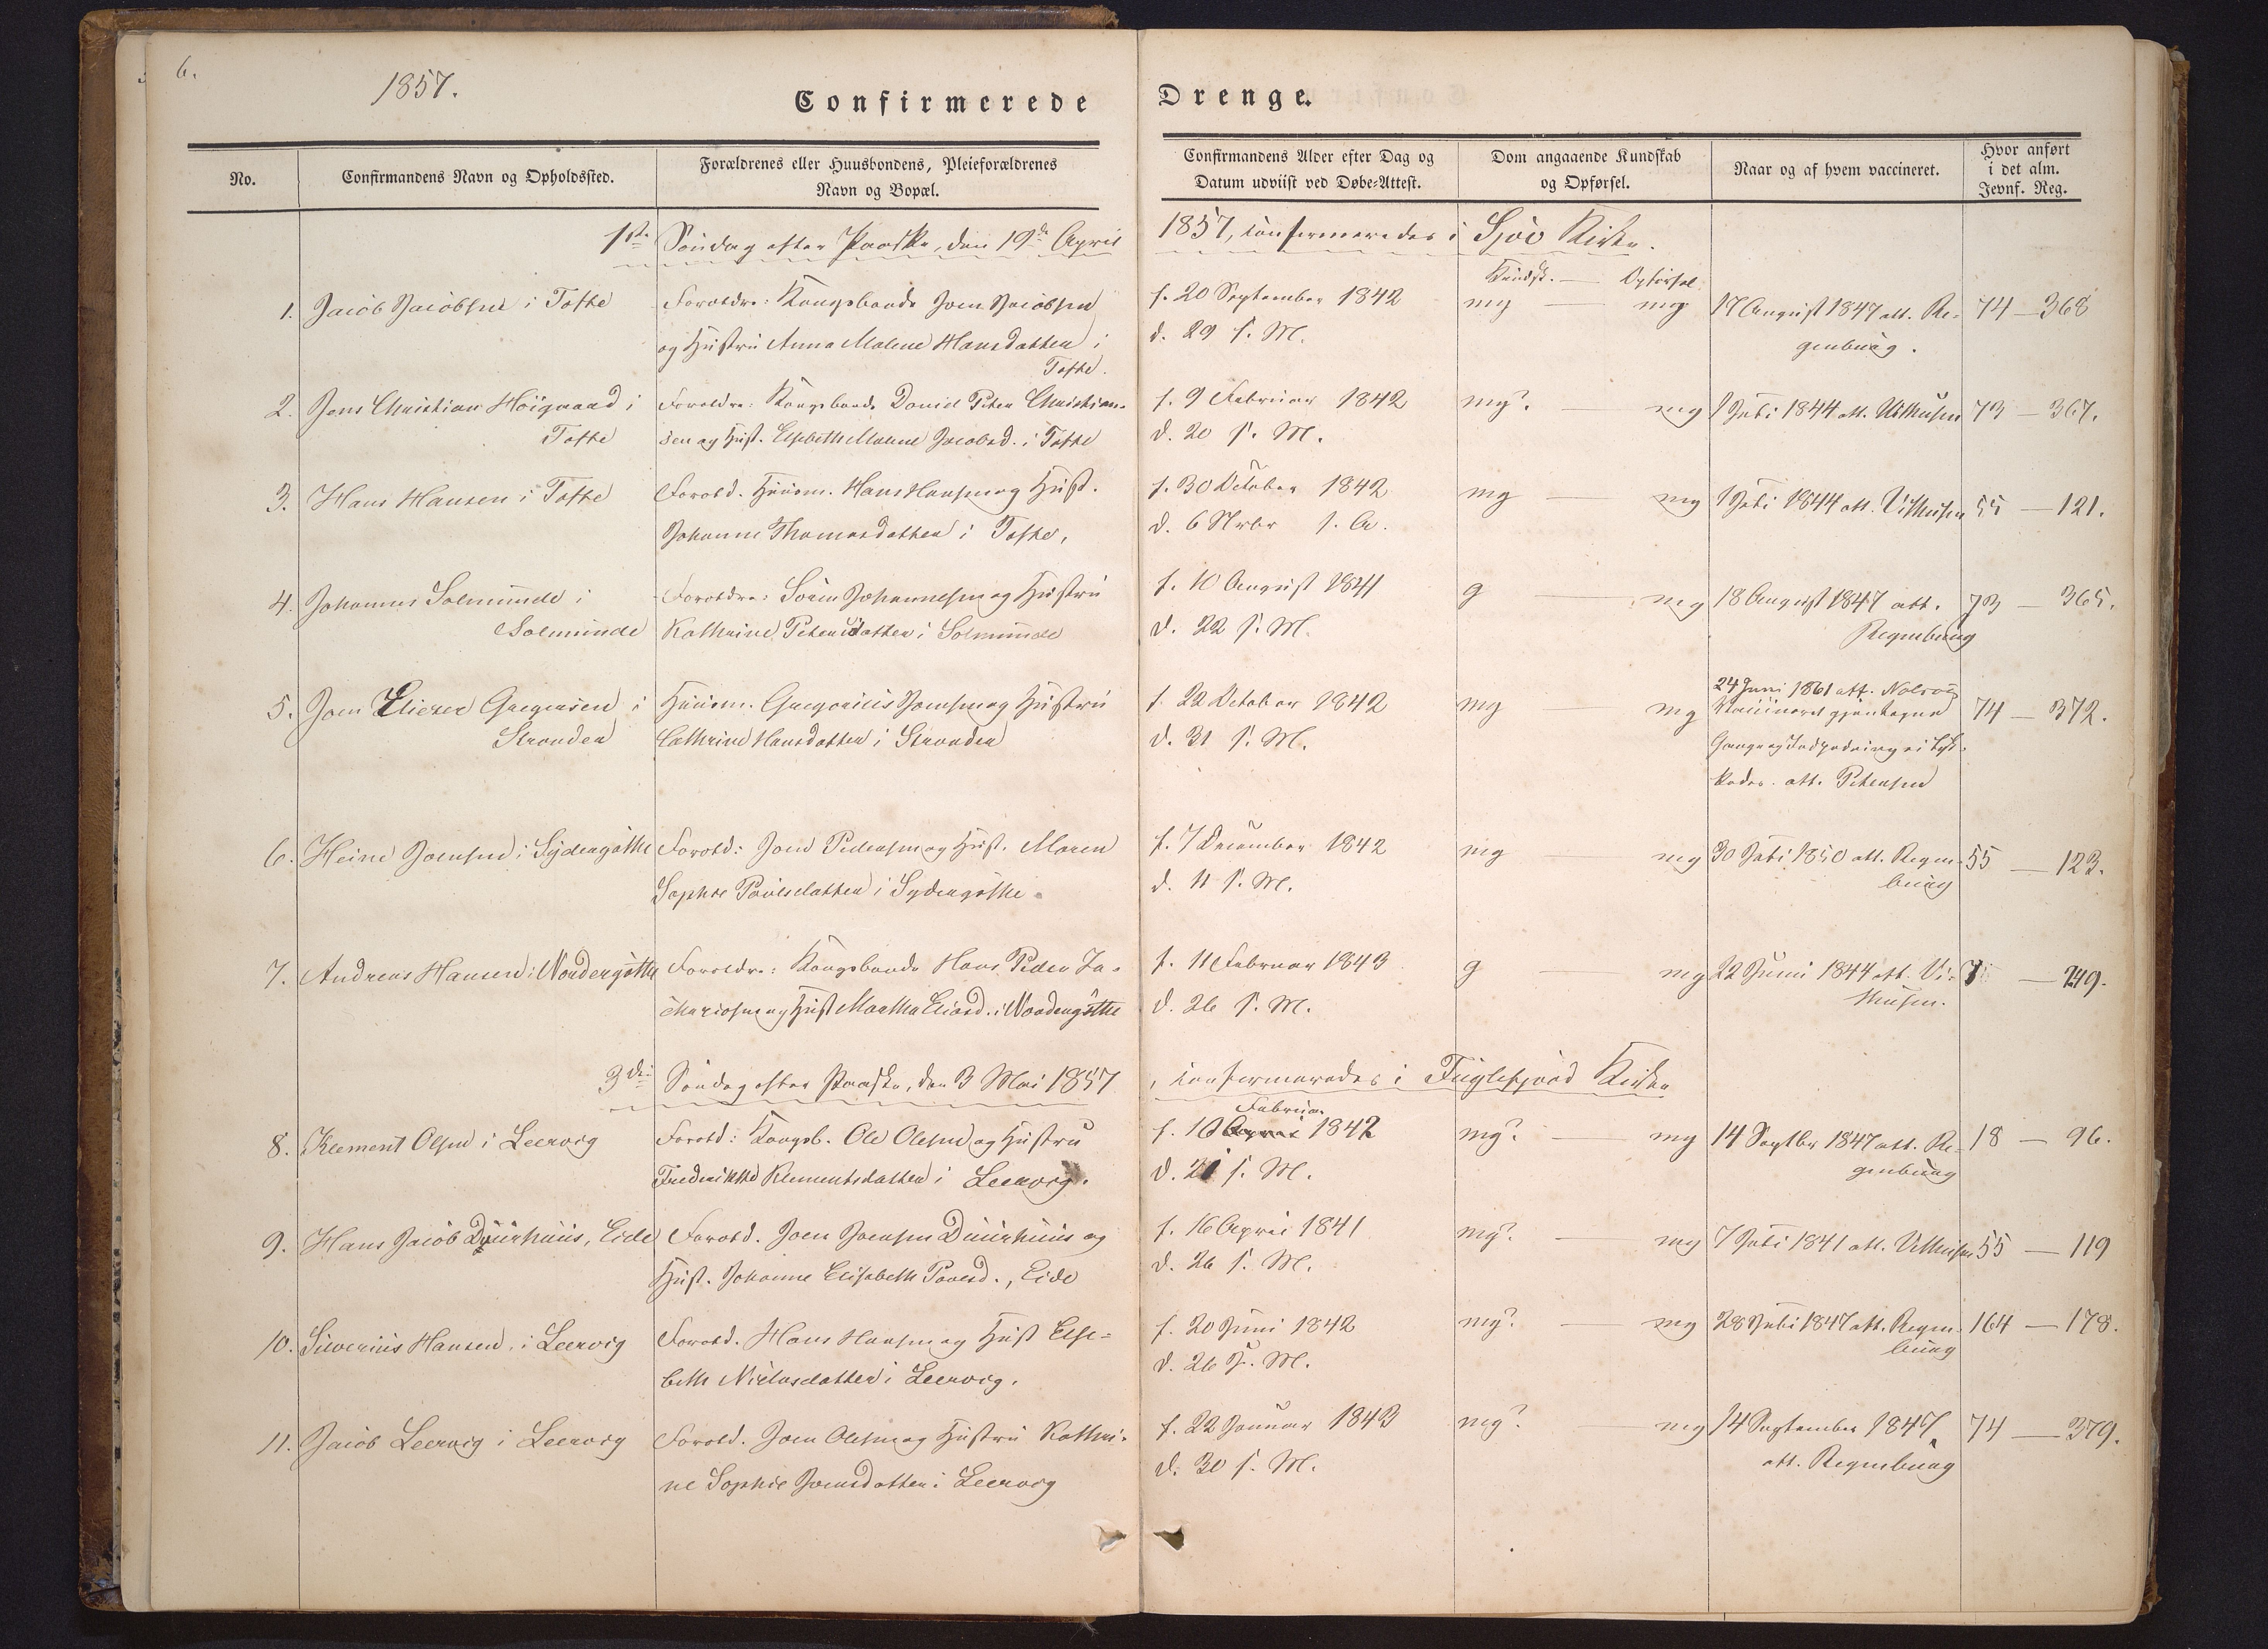 6.
1857.
Confirmerede Drenge.
No.
Confirmandens Navn og Opholdssted.
Forældrenes eller Huusbondens, Pleieforældrenes
Navn og Bopæl.
Confirmandens Alder efter Dag og
Datum udviist ved Døbe-Attest.
Dom angaaende Kundskab
og Opførsel.
Naar og af hvem vaccineret.
Hvor anført
i det alm.
Jevnf. Reg.
1ste Søndag efter Paaske, den 19de April 1857, confirmeredes i Sjov Kirke.
Kundsk. — Opførsel
1. Jacob Jacobsen i Tofte
Forældre: Kongsbonde Joen Jacobsen
og Hustru Anna Malene Hansdatter i
Tofte.
f. 20 September 1842
d. 29 s. M.
mg — mg
17 August 1847 att. Re-
genburg.
74 — 368
2. Jens Christian Höigaard i
Tofte
Forældre: Kongsbonde Daniel Peter Christian-
sen og Hust. Elsebeth Malene Jacobsd. i Tofte
f. 9 Februar 1842
d. 20 s. M.
mg? — mg
1 Juli 1844 att. Uthusen
73 — 367.
3. Hans Hansen i Tofte
Foræld. Huusm. Hans Hansen og Hust.
Johanne Thomasdatter i Tofte,
f. 30 October 1842
d. 6 Novbr s. A.
mg — mg
1 Juli 1844 att. Uthusen
55 — 121.
4. Johannes Solmunde i
Solmunde
Forældre: Sörin Johannesen og Hustru
Kathrine Petersdatter i Solmunde
f. 10 August 1841
d. 22 s. M.
g — mg
18 August 1847 att.
Regenburg
73 — 365.
5. Joen Elieser Gregersen i
Stronden
Huusm. Gregorius Joensen og Hustru
Cathrine Hansdatter i Stronden
f. 22 October 1842
d. 31 s. M.
mg — mg
24 Juni 1861 att. Nolsøe
Vaccineret gjentagne
Gange og Indpodning ei lyk-
kedes. att. Petersen
74 — 372.
6. Heine Joensen i Sydergöthe
Foræld: Joen Pedersen og Hust. Maren
Sophie Poulsdatter i Sydergöthe.
f. 7 December 1842
d. 11 s. M.
mg — mg
30 Juli 1850 att. Regen-
burg
55 — 123.
7. Andreas Hansen i Nordergöthe
Forældre: Kongsbonde Hans Peder Za-
chariasen og Hust Martha Eliasd. i Nordergöthe
f. 11 Februar 1843
d. 26 s. M.
g — mg
22 Juni 1844 att. Ut-
husen.
7 — 249.
3die Søndag efter Paaske, den 3 Mai 1857, confirmeredes i Fuglefjord Kirke
8. Klement Olsen i Leervig
Foræld: Kongsb. Ole Olesen og Hustru
Frederikke Klementsdatter i Leervig.
Februar
f. 10 April 1842
d. 21 s. M.
mg? — mg
14 Septbr 1847 att. Re-
genburg
18 — 96.
9. Hans Jacob Duurhuus, Eide
Foræld. Joen Joensen Duurhuus og
Hust. Johanne Elisabeth Poulsd., Eide
f. 16 April 1841
d. 26 s. M.
mg? — mg
7 Juli 1841 att. Uthusen
55 — 119
10. Siverius Hansen, i Leervig
Foræld. Hans Hansen og Hust Else-
beth Niclasdatter i Leervig.
f. 20 Juni 1842
d. 26 s. M.
mg? — mg
28 Juli 1847 att. Regen-
burg
164 — 178.
11. Jacob Leervig i Leervig
Foræld. Joen Olesen og Hustru Kathri-
ne Sophie Joensdatter i Leervig
f. 22 Januar 1843
d. 30 s. M.
mg? — mg
14 September 1847,
att. Regenburg
74 — 379.